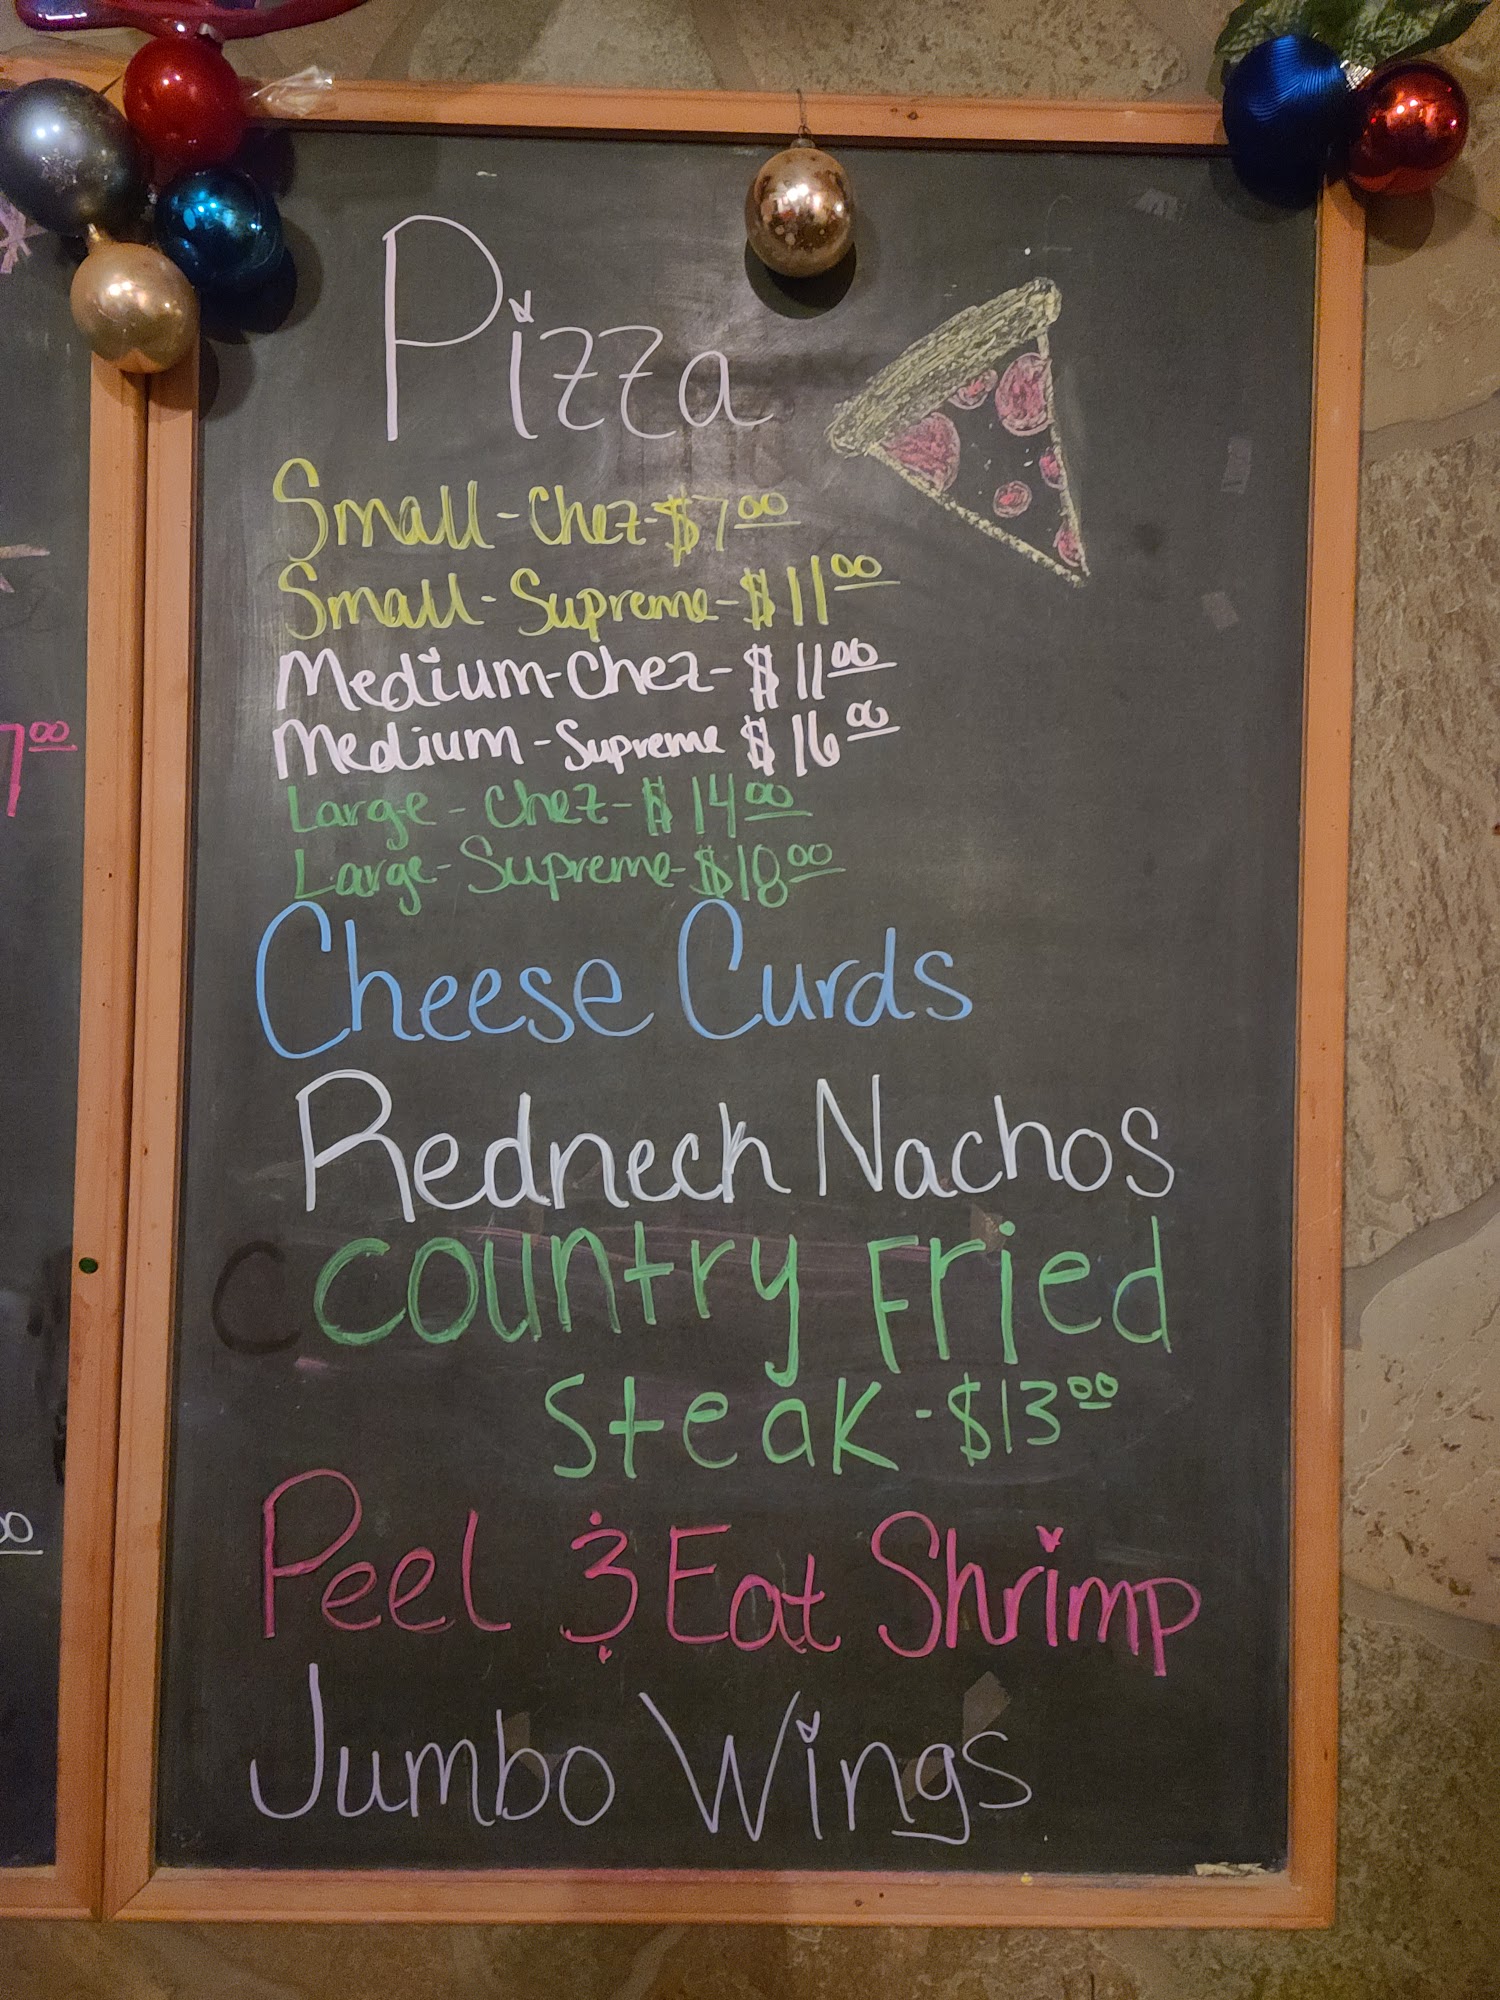 Pizza
Small - Chez - $7.00
Small - Supreme - $11.00
Medium - Chez - $11.00
Medium - Supreme $16.00
Large - Chez - $14.00
Large - Supreme - $18.00
Cheese Curds
Redneck Nachos
Country Fried
Steak - $13.00
Peel & Eat Shrimp
Jumbo Wings
7.00